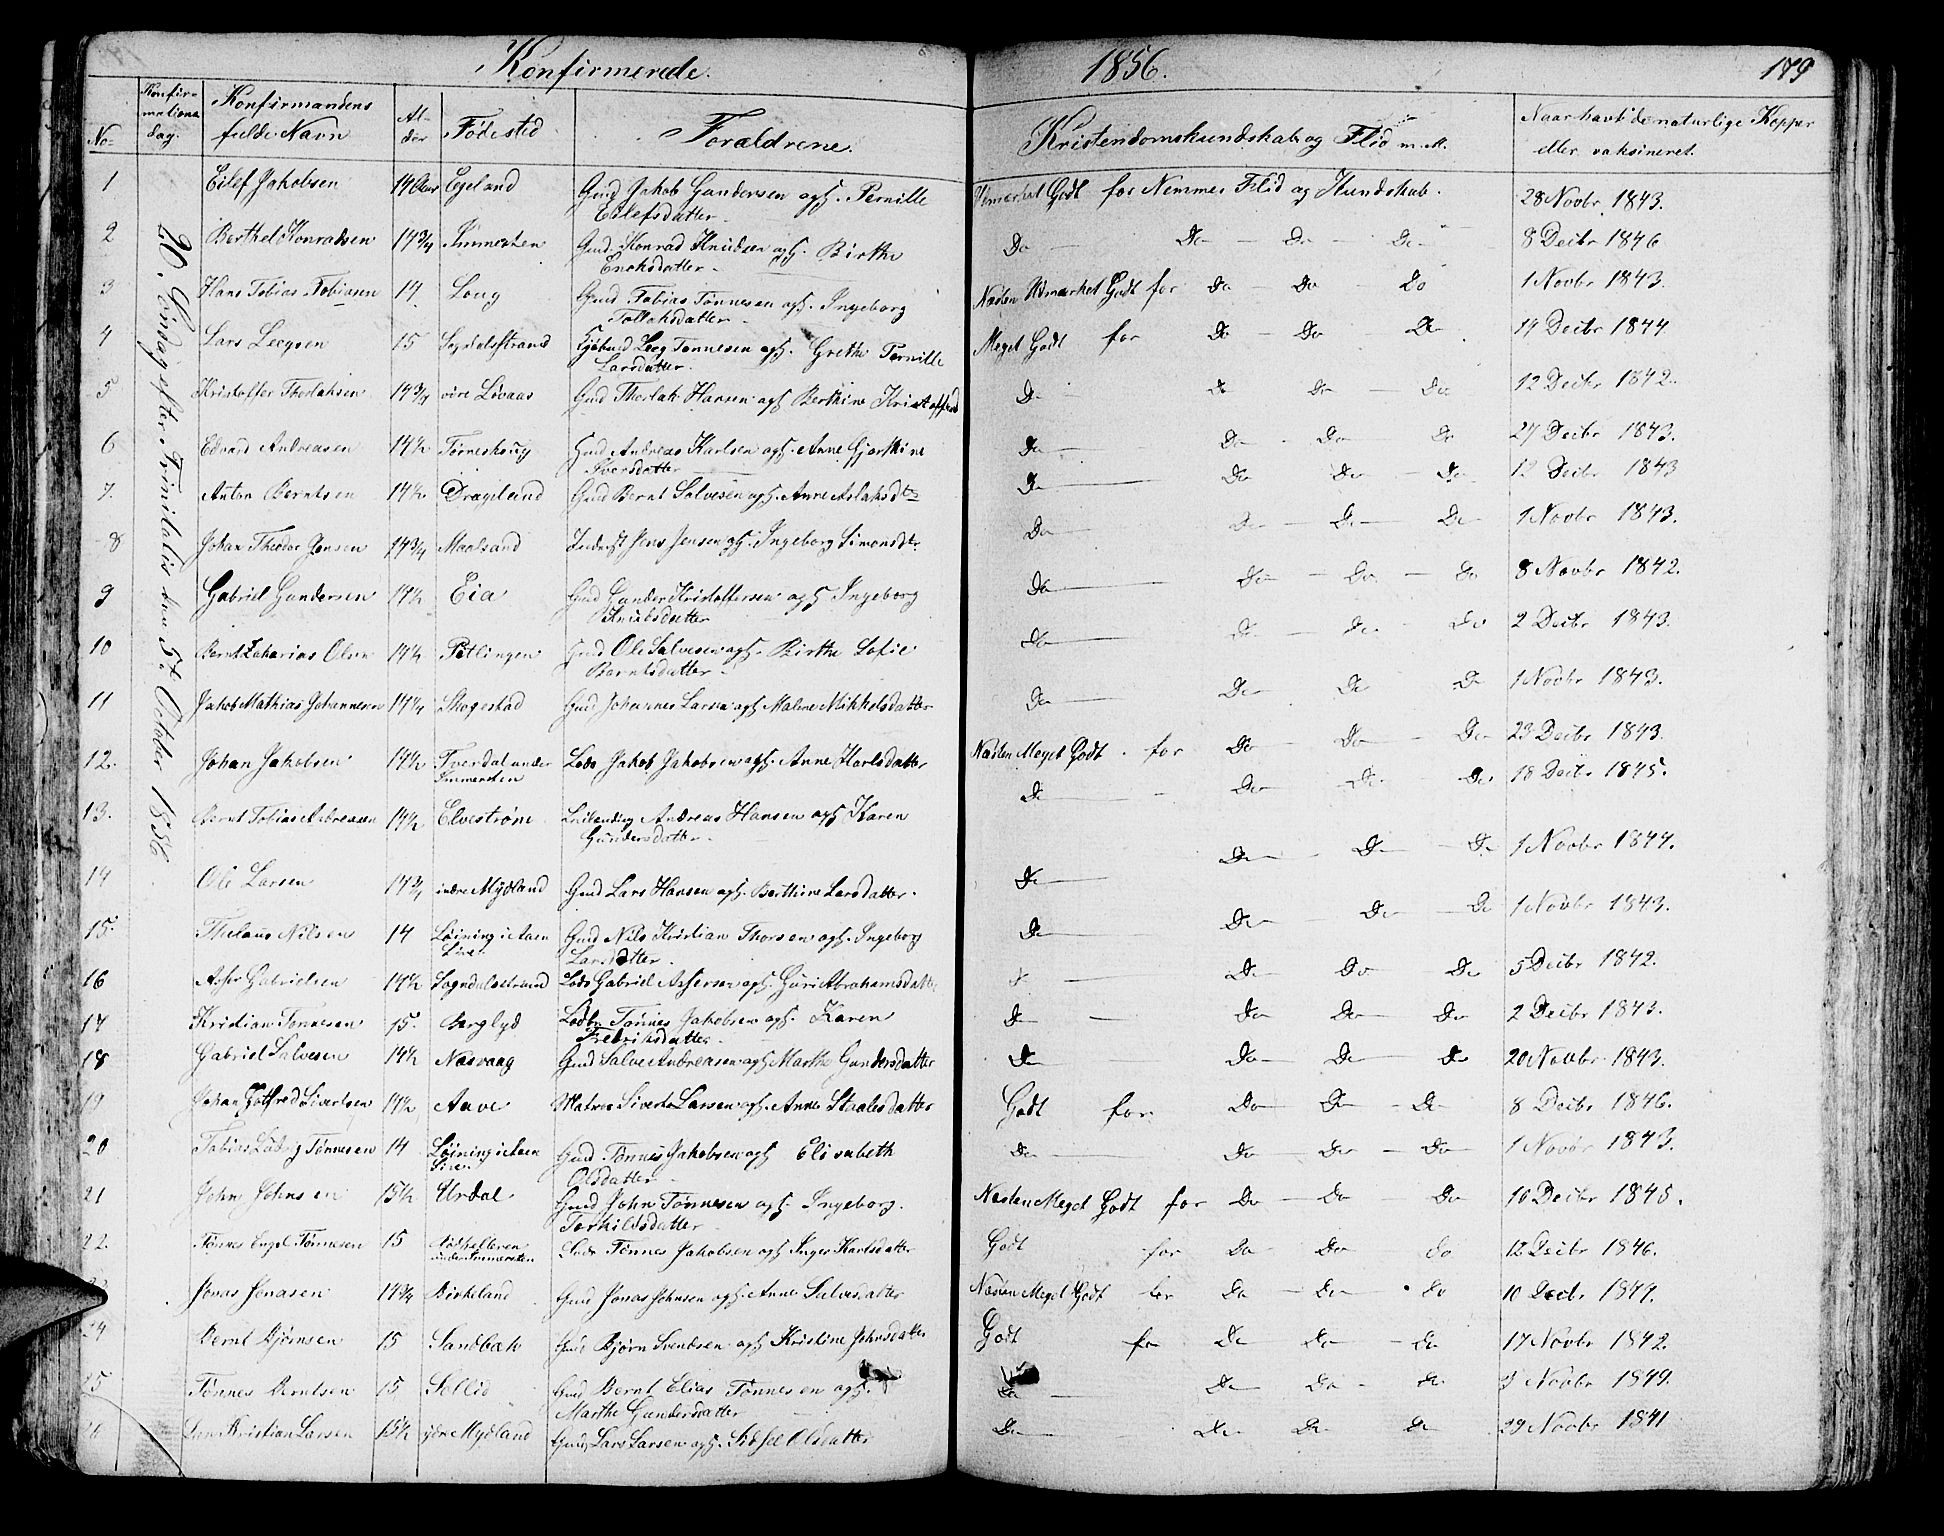 Konfirmerede. 1856. 179
No. Konfirmations dag. Konfirmandens fulde Navn Alder Fødested Forældrene. Kristendomskundskab og Flid m.M. Naar havt de naturlige Kopper eller vaksineret.
20. Søndag efter Trinitatis den 5te October 1856
1 Eilef Jakobsen 14 Aar Egeland Gmd Jakob Gundersen og h. Pernille Eilefsdatter. Udmærket Godt for Nemme Flid og Kundskab. 28 Novbr 1843.
2 Berthel Konradsen 14 3/4 Immersten Gmd. Konrad Knudsen og h. Birthe Enoksdatter. Do Do Do Do 8 Decbr 1846
3 Hans Tobias Tobiasen 14 Loug Gmd Tobias Tønnesen og h. Ingeborg Tollaksdatter. Næsten Udmærket Godt for Do Do Do 1 Novbr 1843.
4 Lars Leegsen 15 Sogndalsstrand Leeg Tønnesen og h. Grethe Pernille Larsdatter. Meget Godt for Do Do Do 14 Decbr 1844.
5 Kristoffer Thorlaksen 14 3/4 øvre Løvaas Gmd Thorlak Hansen og h Berthine Kristoffersd Do Do Do Do 12 Decbr 1842.
6 Edvard Andreasen 14 1/2 Tørneskoug Gmd Andreas Karlsen og h. Anne Gjerthine Iversdatter Do Do Do Do 27 Decbr 1843.
7. Anton Berntsen 14 1/2 Drageland Gmd Bernt Salvesen og h. Anne Aslaksdtr Do Do Do Do 12 Decbr 1843
8 Johan Theodor Jensen 14 3/4 Maalsand Jens Jensen og h. Ingeborg Simonsdtr Do Do Do Do 1 Novbr 1843.
9 Gabriel Gundersen 14 1/2 Eia Gmd Gunder Kristoffersen og h Ingeborg Knudsdatter Do Do Do Do 8 Novbr 1842.
10 Bernt Zakarias Olsen 14 1/2 Pøtlingen Gmd Ole Salvesen og h. Birthe Sofie Berntsdatter. Do Do Do Do 2 Decbr 1843.
11 Jakob Mathias Johannesen 14 1/4 Skogestad Gmd Johannes Larsen og h Malene Mikkelsdatter Do Do Do Do 1 Novbr 1843.
12. Johan Jakobsen 14 1/2 Tverdal under Immersten Lods Jakob Jakobsen og h. Anne Karlsdatter Næsten Meget Godt for Do Do Do 23 Decbr 1843.
13. Bernt Tobias Andreasen 14 1/2 Elvestrøne Andreas Hansen og h Karen Gundersdatter. Do Do Do Do 18 Decbr 1845.
14 Ole Larsen 14 3/4 indre Mydland Gmd Lars Hansen og h. Berthine Larsdatter. Do Do Do Do 1 Novbr 1844.
15. Nilsen 14 Løining i Aaen Siren Gmd Nils Kristian Thorsen og h. Ingeborg Larsdatter. Do Do Do Do 1 Novbr 1843.
16 Asser Gabrielsen 14 1/2 Sogndalsstrand Lods Gabriel Assersen og h. Guri Abrahamsdatter Do Do Do 5 Decbr 1842.
17 Kristian Tønnesen 15. Berglyd Lods Tønnes Jakobsen og h. Karen Fredriksdatter. Do Do Do Do 2 Decbr 1843.
18 Gabriel Salvesen 14 1/2 Næsvaag Gmd Salve Andreasen og h Marthe Gundersdatter Do Do Do Do 20 Novbr 1843.
19 Johan Gotfred Sivertsen 14 1/2 Aave Matros Sivert Larsen og h. Anne Staalesdatter Godt for Do Do Do 8 Decbr 1846.
20 Tobias Ludvig Tønnesen 14 Løining i Aaen Siren Gmd Tønnes Jakobsen og h Elisabeth Olsdatter. Do Do Do Do 1 Novbr 1843.
21 John Johnsen 15 1/2 Urdal Gmd John Tønnesen og h. Ingeborg Torkildsdatter. Næsten Meget Godt for Do Do Do 16 Decbr 1845.
22. Tønnes Engel Tønnesen 15 under Immersten Lods Tønnes Jakobsen og h Inger Karlsdatter Godt for Do Do Do 12 Decbr 1846.
23 Jonas Jonasen 14 3/4 Birkeland Gmd Jonas Johnsen og h. Anne Salvesdatter Næsten Meget Godt for Do Do Do 10 Decbr 1844.
24 Bernt Bjørnsen 15 Sandbæk Gmd Bjørn Svendsen og h Kristine Johnsdatter Godt for Do Do Do 17 Novbr 1842.
25 Tønnes Berntsen 15 Sellid Gmd Bernt Elias Tønnesen og h. Marthe Gundersdatter Do Do Do Do Novbr 1849.
26 Kristian Larsen 15 1/2 ydre Mydland Gmd Lars Larsen og h. Sidsel Olsdatter Do Do Do Do 29 Novbr 1841